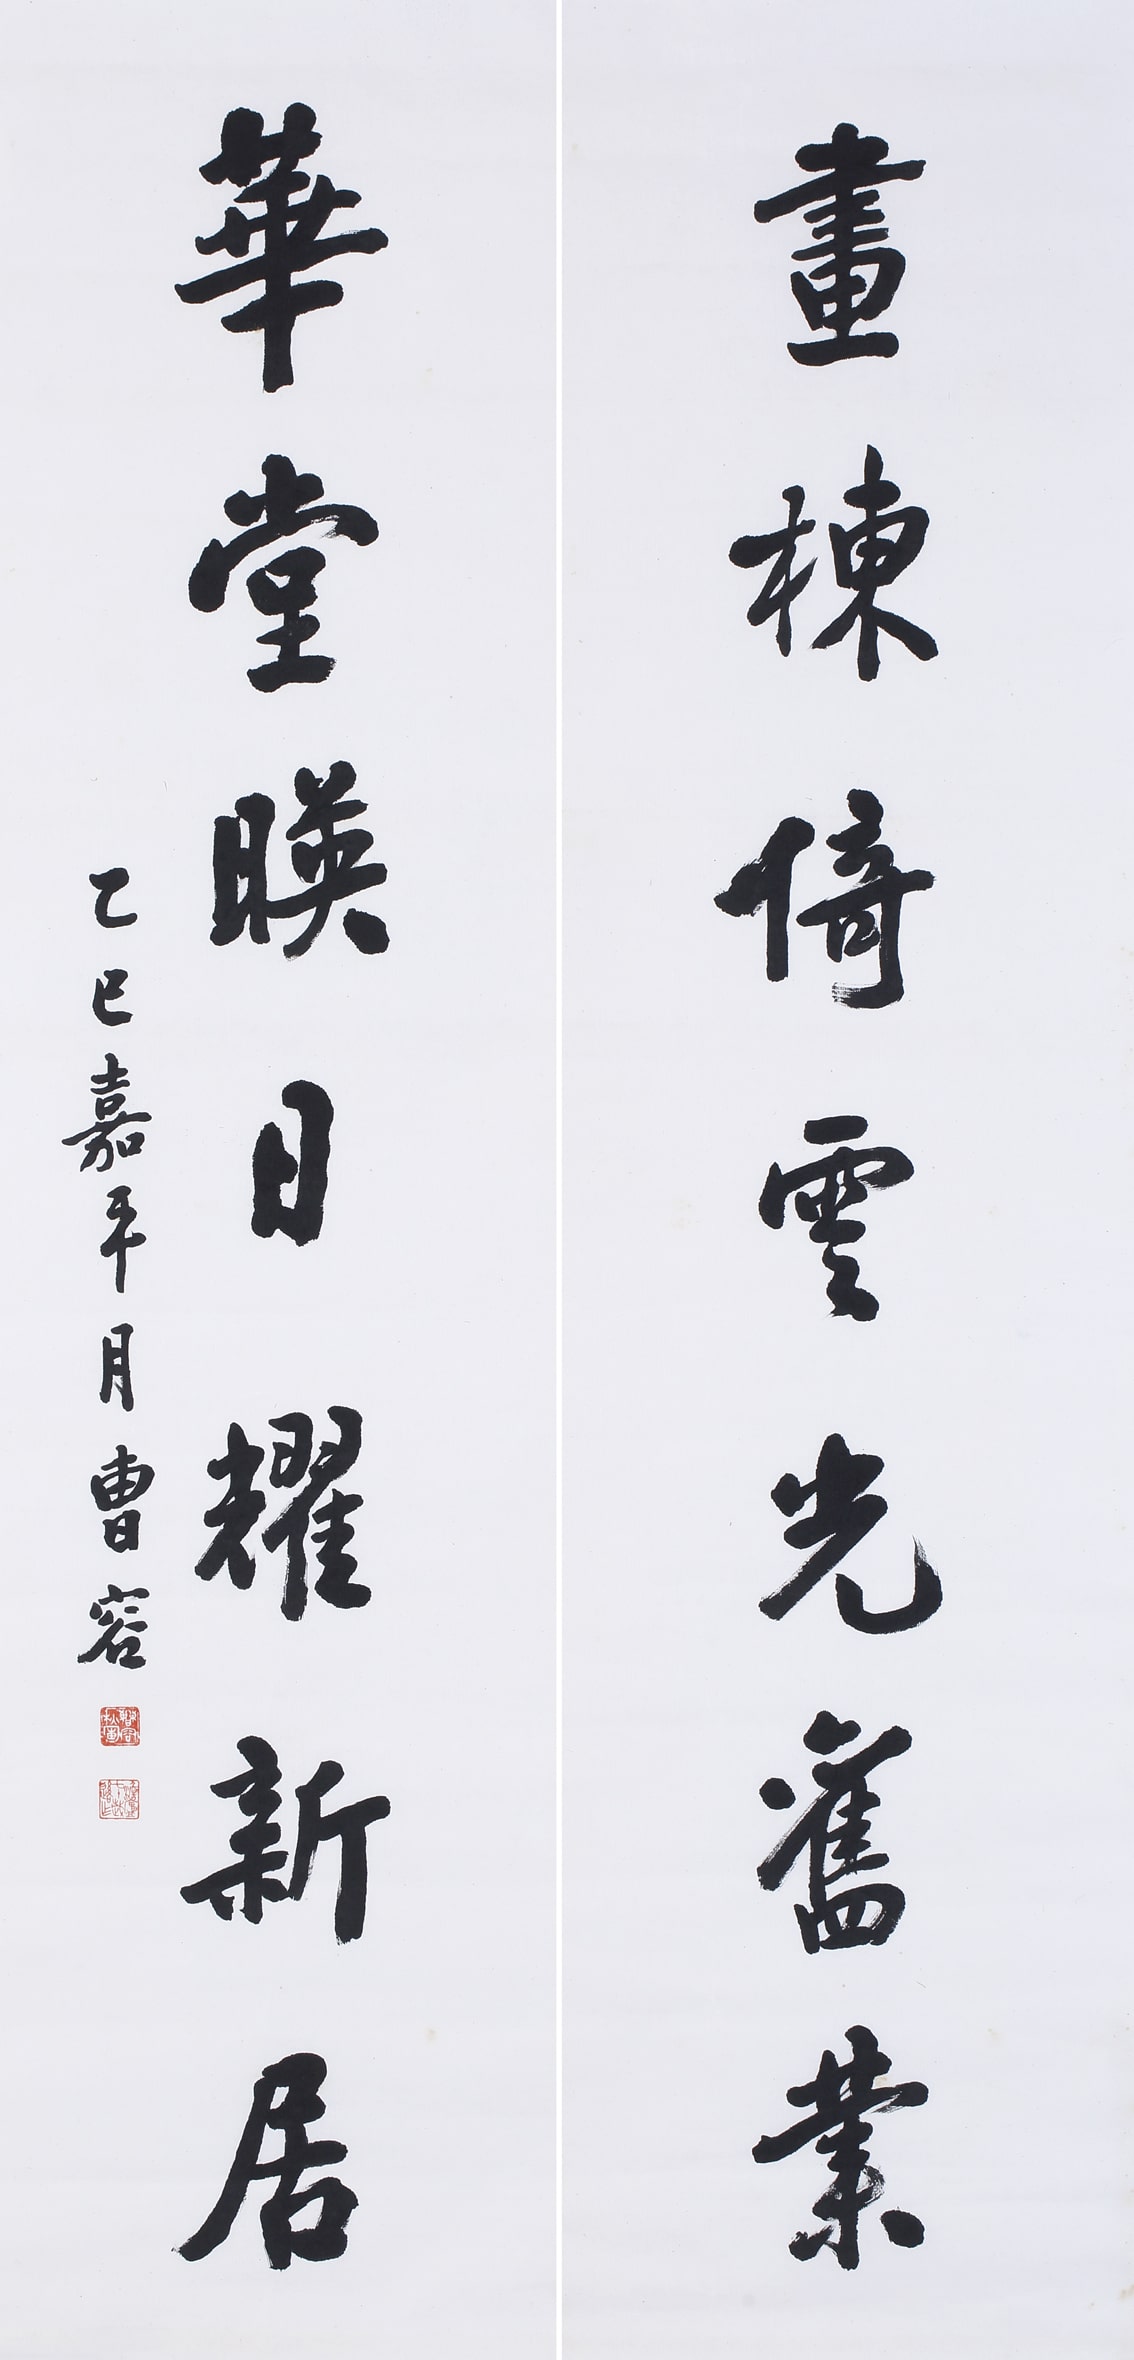 畫棟倚雲光舊業
華堂暎日耀新居
乙巳嘉平月曹容